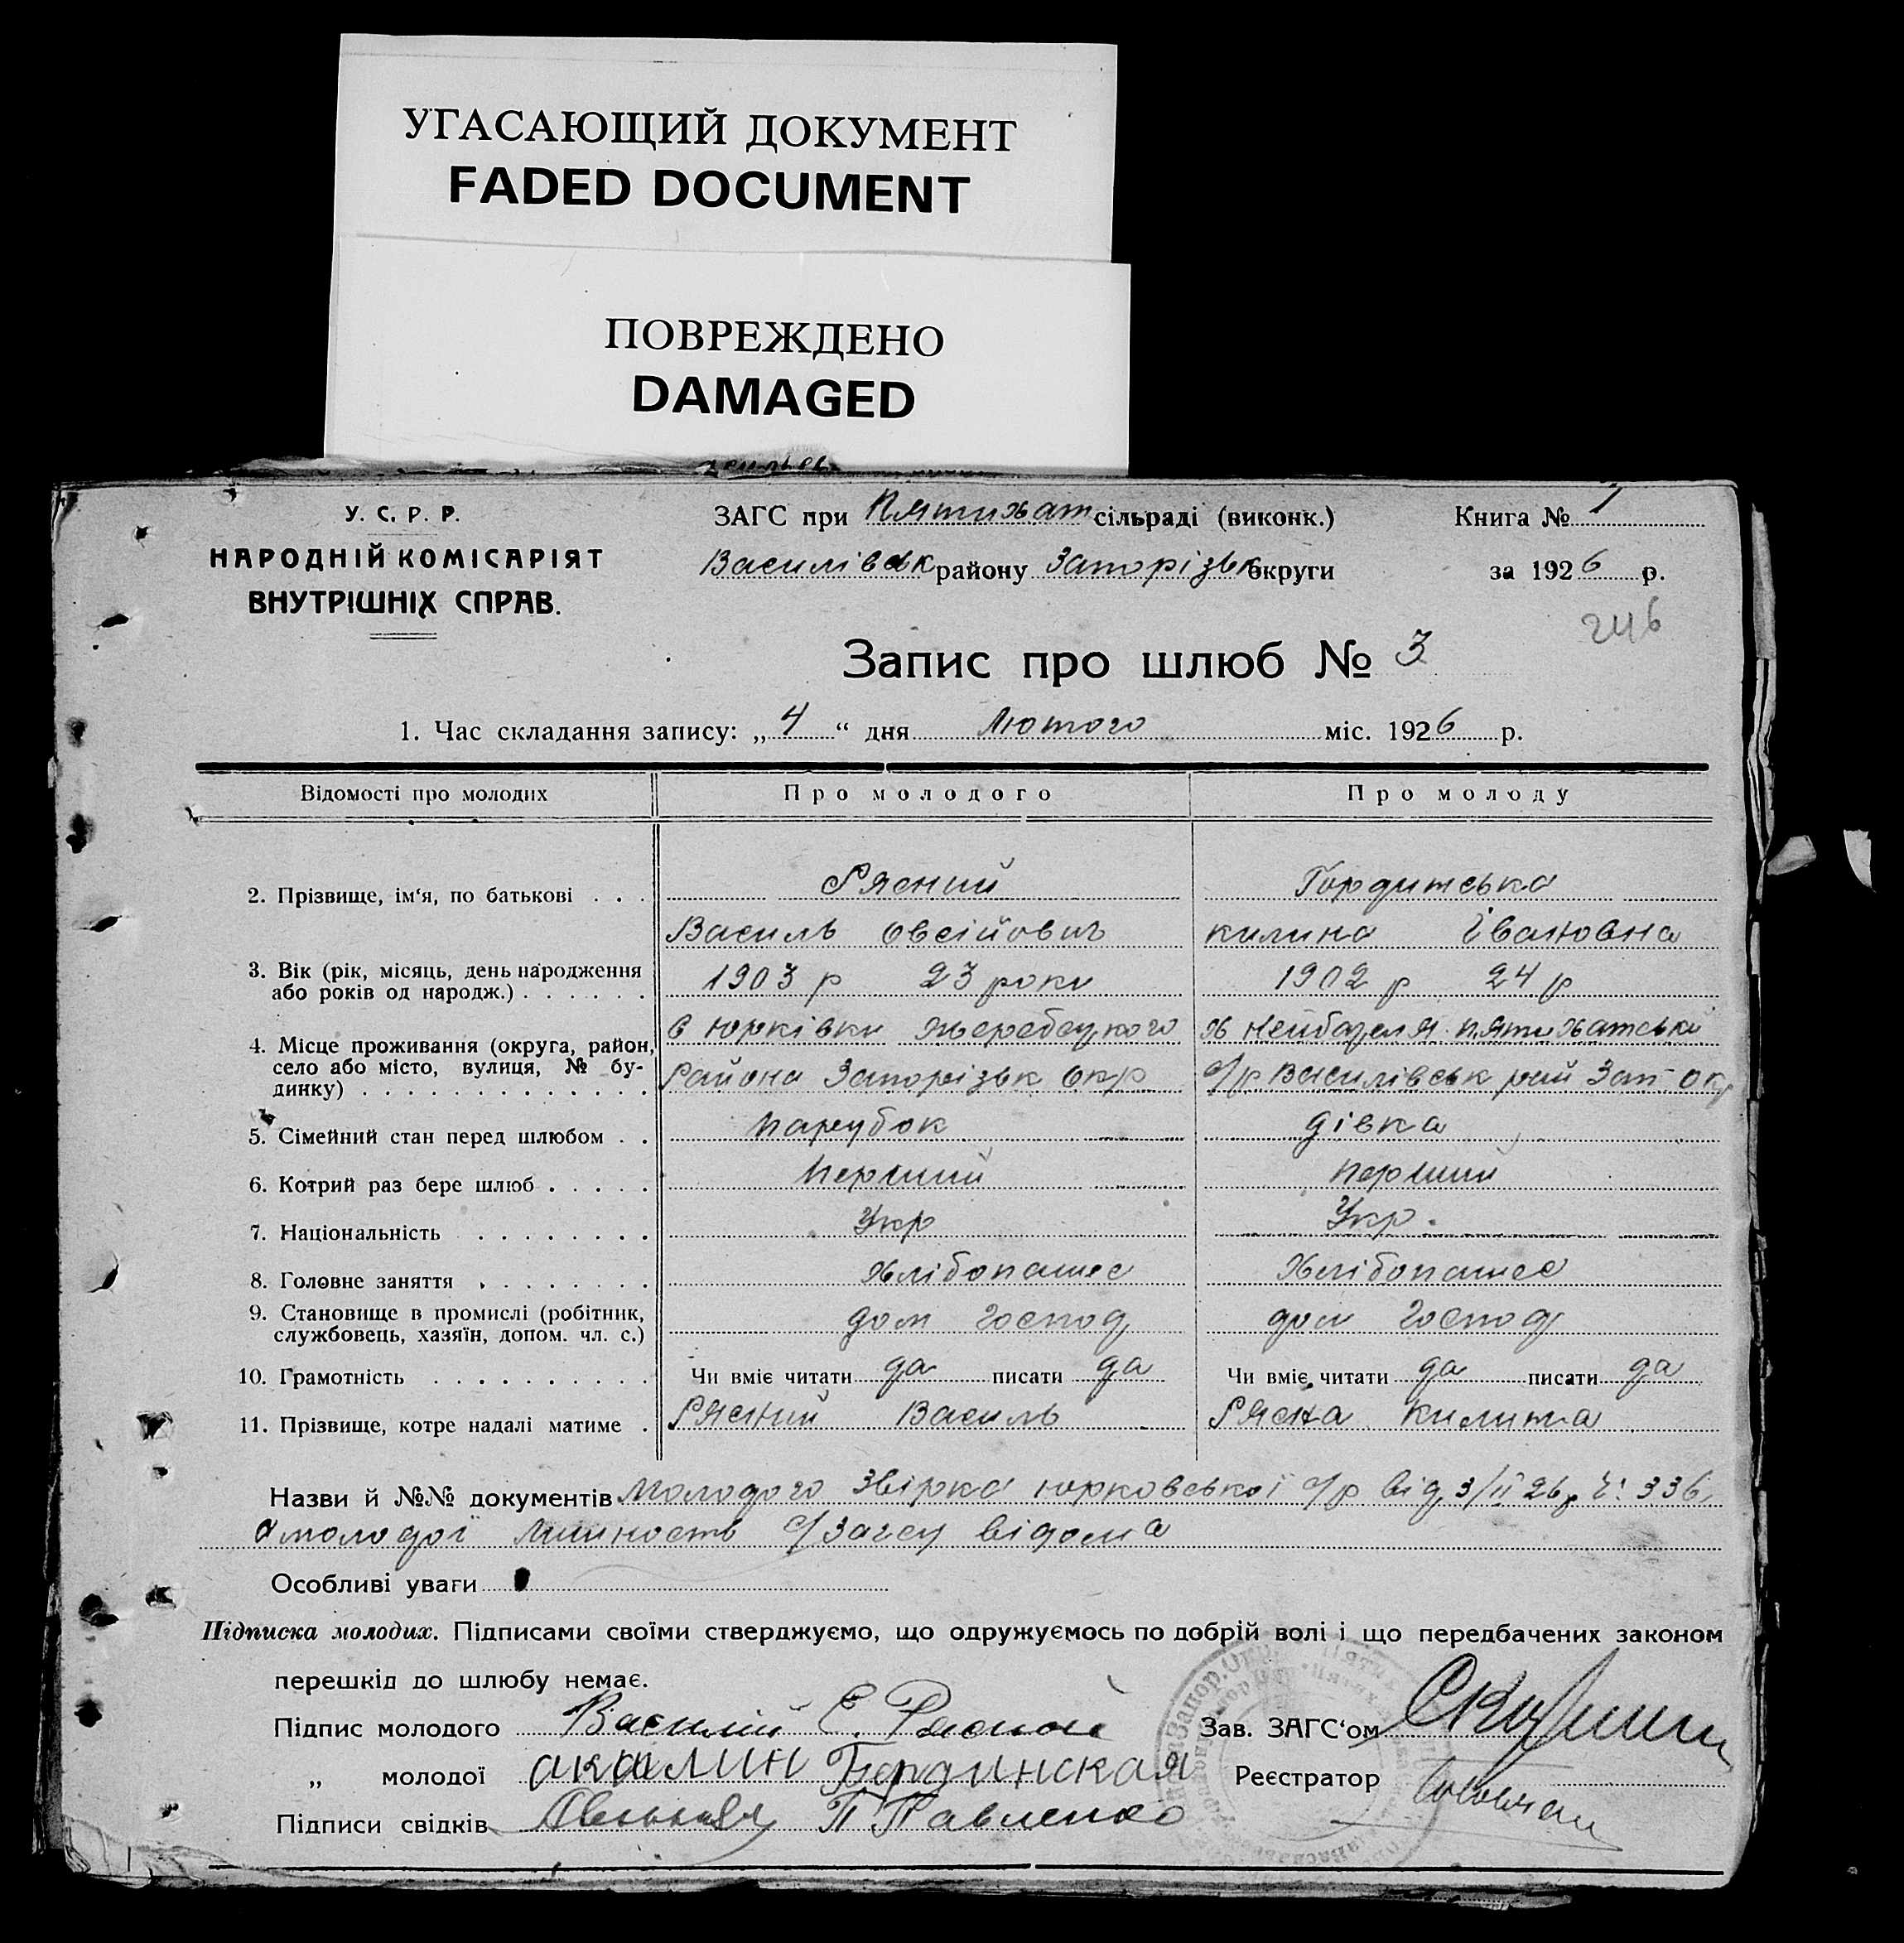 УГАСАЮЩИЙ ДОКУМЕНТ
FADED DOCUMENT
ПОВРЕЖДЕНО
DAMAGED
У. С. Р. Р.
НАРОДНІЙ КОМІСАРІЯТ
ВНУТРІШНІХ СПРАВ.
ЗАГС при Пятихат сільраді (виконк.)
Книга № 1
Василівськ району Запорізьк округи
за 1926 р.
246
Запис про шлюб № 3
1. Час складання запису: „ 4 “ дня Лютого міс. 1926 р.
Відомості про молодих Про молодого Про молоду
2. Прізвище, ім‘я, по батькові . . . Рясний
Василь Овсійович килина Івановна
3. Вік (рік, місяць, день народження
або років од народж.) . . . . . . 1903 р 23 роки 1902 р 24 р
4. Місце проживання (округа, район,
село або місто, вулиця, № бу-
динку) . . . . . . . . . . . . .
в юрківки жеребецкого
Района Запорізьк Окр
х нейбазел я пятихатськи
с/р Василівськ рай Зап-окр
5. Сімейний стан перед шлюбом . . парубок дівка
6. Котрий раз бере шлюб . . . . . перший перший
7. Національність . . . . . . . . Укр Укр.
8. Головне заняття . . . . . . . . хлібопашес хлібопашес
9. Становище в промислі (робітник,
службовець, хазяїн, допом. чл. с.) дом господ дом господ
10. Грамотність . . . . . . . . . . Чи вміє читати да писати да Чи вміє читати да писати да
11. Прізвище, котре надалі матиме . Рясний Василь Рясна килина
Назви й №№ документів молодого Звірка юрковської с/р від 3/II 26 р ч: 336,
а молодої личность с/загсу відома
Особливі уваги
Підписка молодих. Підписами своїми стверджуємо, що одружуємось по добрій волі і що передбачених законом
перешкід до шлюбу немає.
Підпис молодого Василий Е. Расной
Зав. ЗАГС‘ом
„ молодої акилин Гординская
Реєстратор
Підписи свідків П Павленко